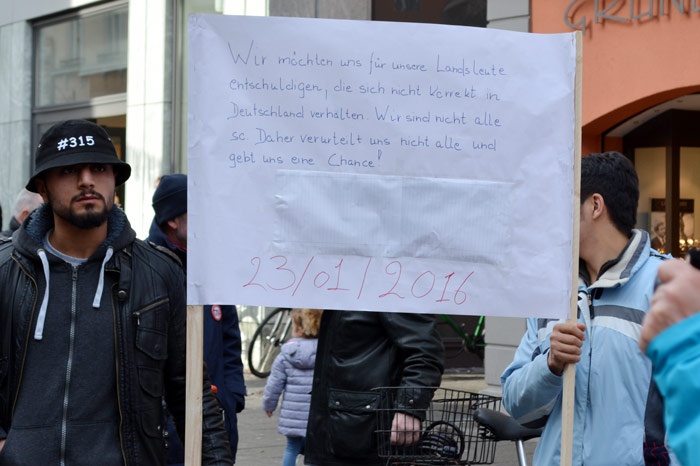 GRÜN
#315
Wir möchten uns für unsere Landsleute
entschuldigen, die sich nicht korrekt in
Deutschland verhalten. Wir sind nicht alle
so. Daher verurteilt uns nicht alle und
gebt uns eine Chance!
23/01/2016